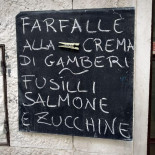 FARFALLE
ALLA CREMA
DI GAMBERI
FUSILLI
SALMONE
E ZUCCHINE